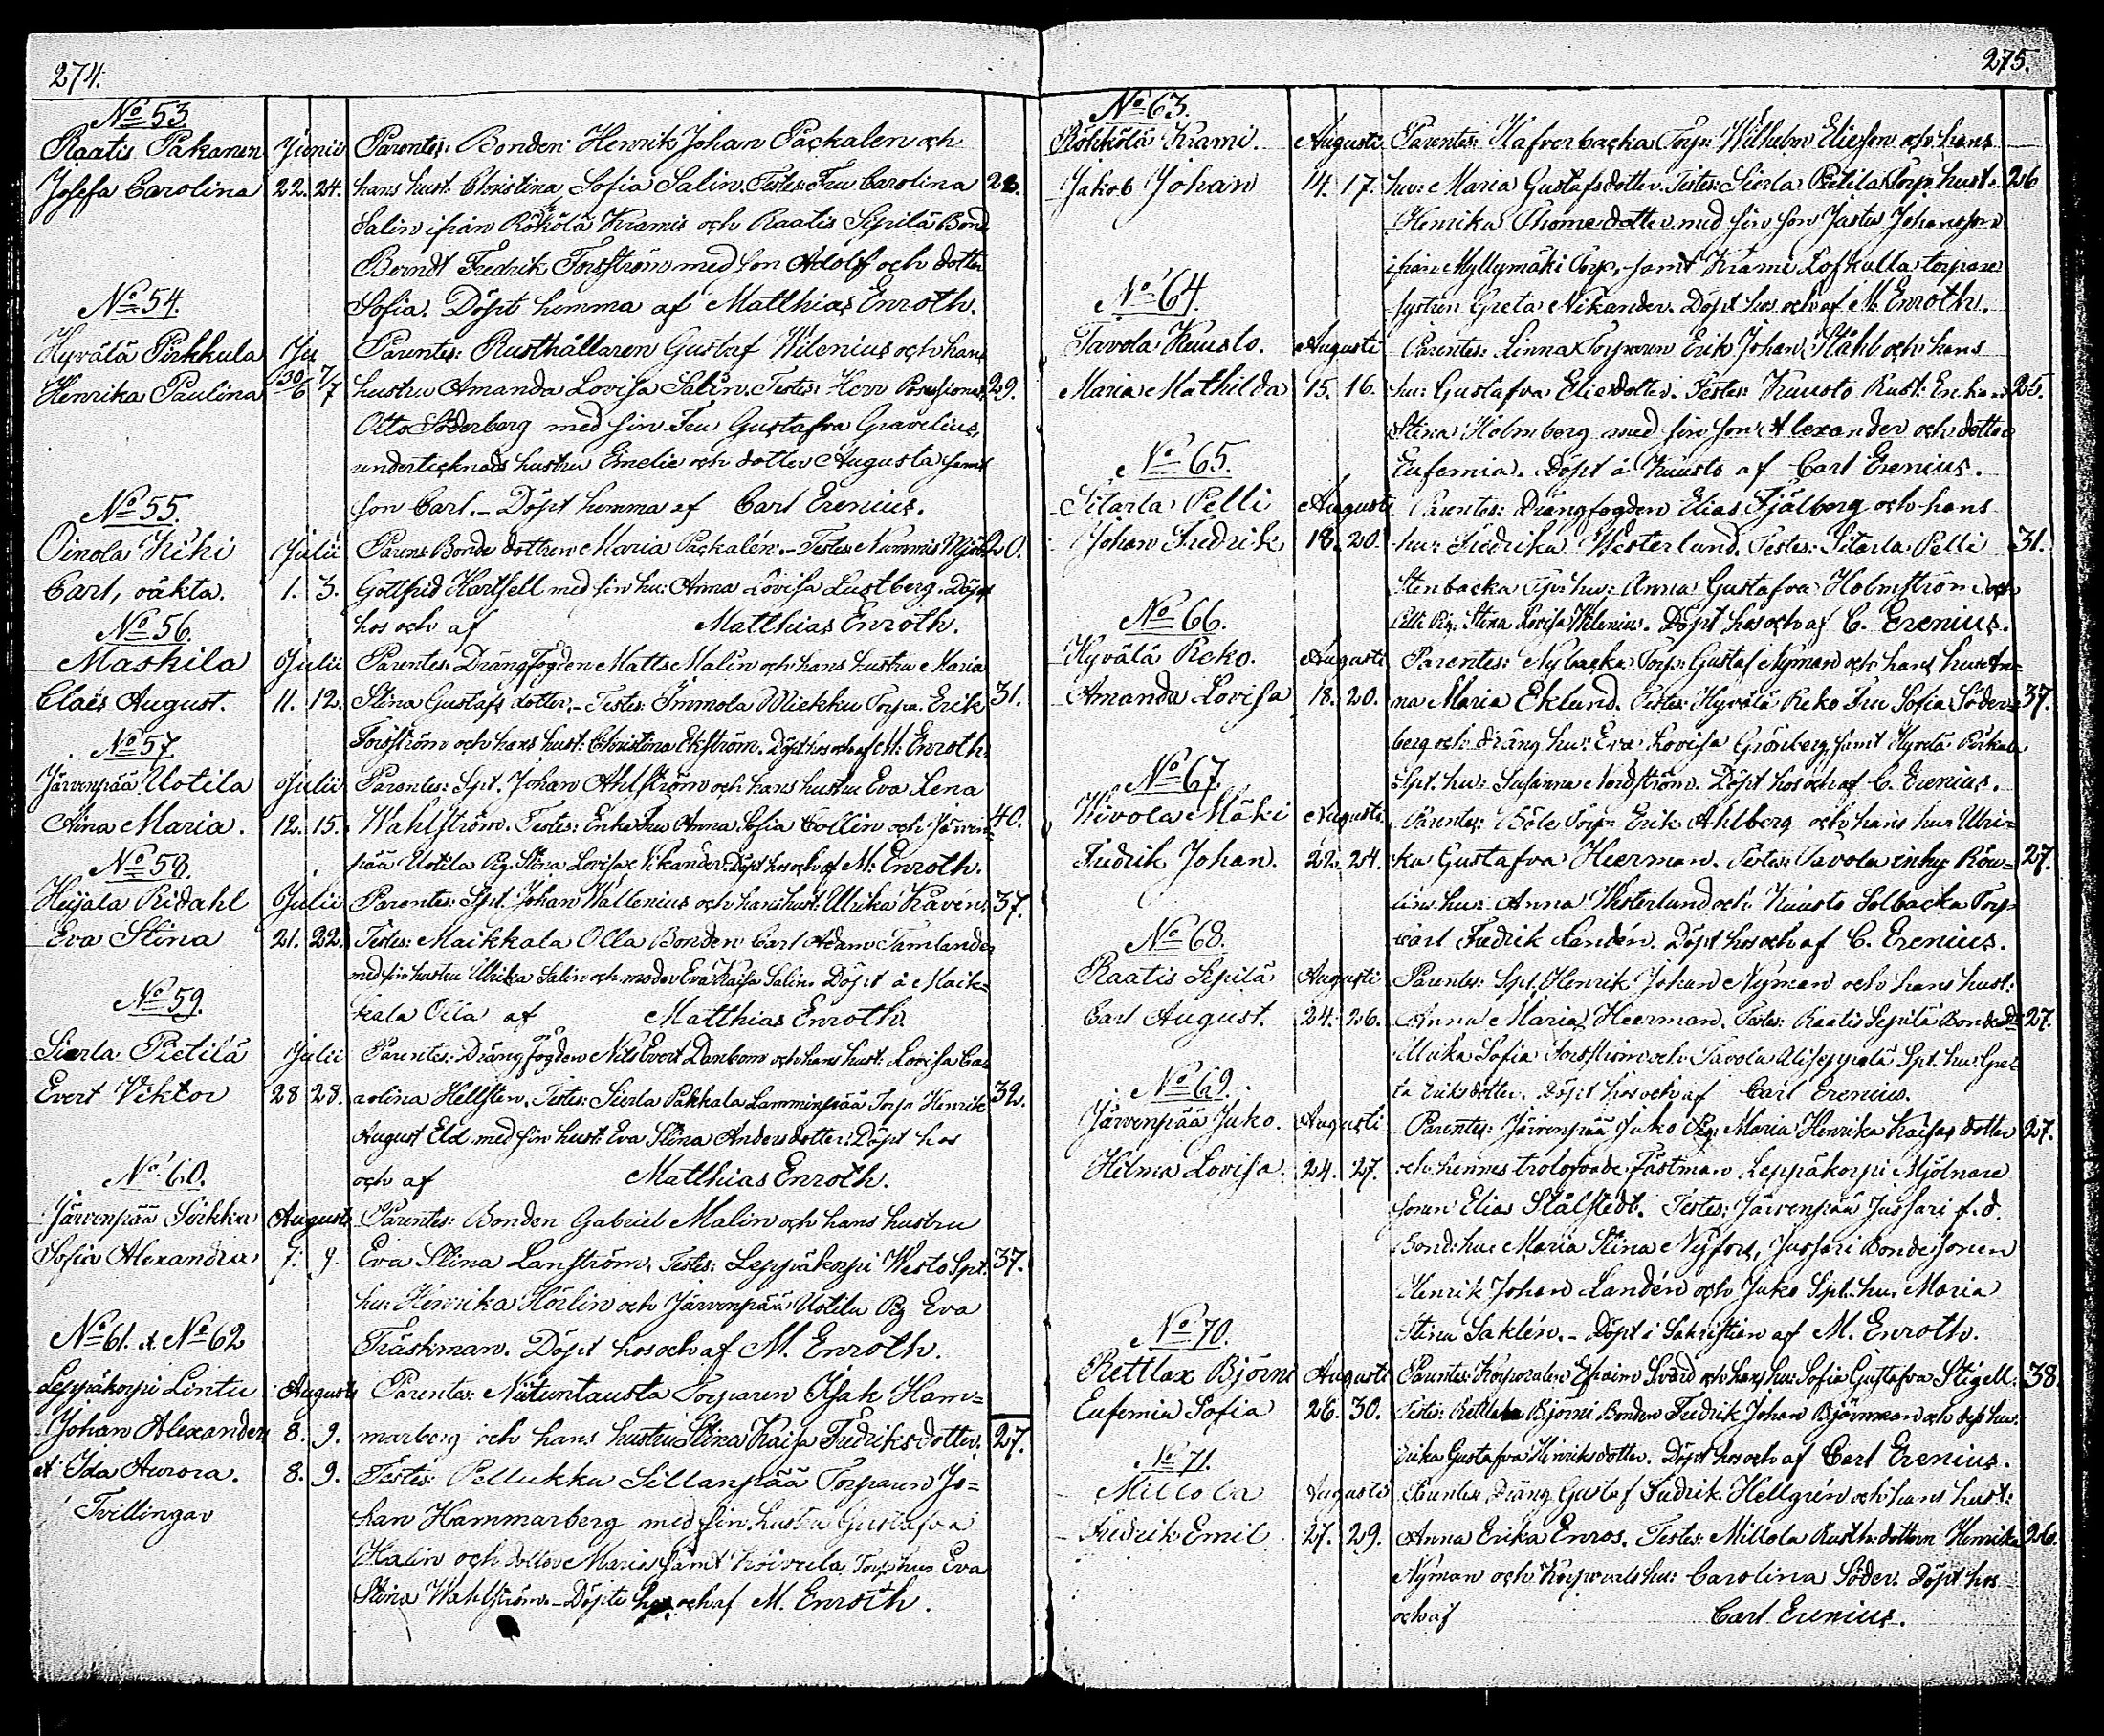 274.
No 53.
Raatis Pakanen Junii Parentes: Bonden Henrik Johan Packalen och
Josefa Carolina 22. 24. hans hust. Christina Sofia Salin. Testes: Fru Carolina
Salin ifrån Rökölä Krami och Raatis Sipilä Bond.
Berndt Fredrik Forsström med son Adolf och dotter
No 54. Sofia. Döpt hemma af Matthias Enroth.
Hyvälä Pirkkula Ju Parentes: Rusthållaren Gustaf Wilenius och hans
Henrika Paulina 30/6 7/7 hustru Amanda Lovisa Salin. Testes: Herr Possessionat 29.
Otto Söderberg med sin Fru Gustafva Gravelius,
undertecknads hustru Emelie och dotter Augusta samt
No 55. son Carl. - Döpt hemma af Carl Erenius.
Oinola Kiki Julii Parens Bonde dottren Maria Packalén. - Testes: Nummis Mjöln. 20.
Carl, oäkta. 1. 3. Gottfrid Hartsell med sin hu: Anna Lovisa Lustberg. Döpt
No 56. hos och af Matthias Enroth.
Maskila Julii Parentes: Drängfogden Matts Malin och hans hustru Maria
Claës August. 11. 12. Stina Gustafs dotter. - Testes: Immola Miekku Torpa. Erik 31.
No 57. Forsström och hans hust: Christina Ekström. Döpt hos och af M: Enroth.
Järvenpää Uotila Julii Parentes: Spt. Johan Ahlström och hans hustru Eva Lena
Aina Maria. 12. 15. Wahlström. Testes: Enke Fru Anna Sofia Collin och Järven- 40.
No 58. pää Uotila Pig. Stina Lovisa Nikander. Döpt hos och af M: Enroth.
Heijala Ridahl Julii Parentes: Spt. Johan Wallenius och hans hust: Ulrika Kavén. 37.
Eva Stina 21. 22. Testes: Maikkala Olla Bonden Carl Adam Tamlander
med sin hustru Ulrika Salin och moder Eva Kaisa Salin. Döpt å Maik-
No 59. kala Olla af Matthias Enroth.
Sierla Pietilä Julii Parentes: Drängfogden Nils Evert Danbom och hans hust: Lovisa Ca-
Evert Viktor 28 28. rolina Hellsten. Testes: Sierla Pakkala Lamminpää Torpa Henrik 32.
August Eld med sin hust: Eva Stina Anders dotter. Döpt hos
No 60. och af Matthias Enroth.
Järvenpää Sirkka Augusti Parentes: Bonden Gabriel Malin och hans hustru
Sofia Alexandra 7. 9. Eva Stina Lanström. Testes: Leppäkorpi Westo Spt. 37.
hu: Henrika Hörlin och Järvenpää Uotila Pig Eva
No 61. & No 62 Träskman. Döpt hos och af M. Enroth.
Leppäkorpi Lintu Augusti Parentes: Niituntausta Torparen Isak Ham-
Johan Alexander 8. 9. marberg och hans hustru Stina Kaisa Fredriksdotter. 27.
et Ida Aurora. 8. 9. Testes: Pellukka Sillanpää Torparen Jo-
Tvillingar han Hammarberg med sin hustru Gustafva
Malin och dotter Maria samt Koivula Torp hus Eva
Stina Wahlström. - Döpte hos och af M. Enroth.
275.
No 63.
Rökkölä Krami. Augusti Parentes: Hafverbacka Torp: Wilhelm Elieson och hans
Jakob Johan 14. 17. hu: Maria Gustafsdotter. Testes: Sierla Pietilä Torp. hust. 26
Henrika Thomedotter med sin son Justus Johansson
ifrån Myllymäki Torp, samt Krami Lofkulla torpare
No 64. systren Greta Nikander. Döpt hos och af M. Enroth.
Tavola Kuusto. Augusti Parentes: Linna Torparen Erik Johan Ståhl och hans
Maria Mathilda 15. 16. hu: Gustafva Eliedotter. Testes: Kuusto Rust: Enkan 25.
Stina Holmberg med sin son Alexander och dotter
No 65. Eufemia. Döpt å Kuusto af Carl Erenius.
Sitarla Pelli Augusti Parentes: Drängfogden Elias Fjälberg och hans
Johan Fredrik 18. 20. hu: Fredrika Westerlund. Testes: Sitarla Pelli 31.
Stenbacka Tp: hu: Anna Gustafva Holmström och
No 66. Pelli Pig: Stina Lovisa Wilenius. Döpt hos och af C. Erenius.
Hyvälä Reko. Augusti Parentes: Nybacka Torp: Gustaf Nyman och hans hu: An-
Amanda Lovisa 18. 20. na Maria Eklund. Testes: Hyvälä Reko Fru Sofia Söder- 37.
berg och dräng hu: Eva Lovisa Grönberg, samt Hyvälä Pirkula
No 67. Spt. hu: Susanna Nordström. Döpt hos och af C. Erenius.
Wivola Mäki Augusti Parentes: Böle Torp: Erik Ahlberg och hans hu: Ulri-
Fredrik Johan. 22. 24. ka Gustafva Heerman. Testes: Tavola inhys 27.
hu: Anna Westerlund och Kuusto Solbacka Torp-
No 68. Fredrik Landén. Döpt hos och af C. Erenius.
Raatis Sipilä Augusti Parentes: Spt. Henrik Johan Nyman och hans hust:
Carl August. 24. 26. Anna Maria Heerman. Testes: Raatis Sipilä Bonde Dr 27.
Ulrika Sofia Forsström och Tavola Alisippola Spt. hu: Gre-
No 69. ta Eriksdotter. Döpt hos och af Carl Erenius.
Järvenpää Juko. Augusti Parentes: Järvenpää Juko Pig: Maria Henrika Kaisas dotter 27.
Hilma Lovisa. 24. 27. och hennes trolofvade Fästman Leppäkorpi Mjölnare
sonen Elias Stålstedt. Testes: Järvenpää Jussari f.d.
Bond: hu: Maria Stina Nyfors, Jussari Bondesonen
Henrik Johan Landén och Juko Spt. hu: Maria
No 70. Stina Saklén. - Döpt i Sakristian af M. Enroth.
Rettlax Björns Augusti Parentes: Korporalen Efraim Svärd och hans hu: Sofia Gustafva Stigell. 38.
Eufemia Sofia 26. 30. Testes: Rettlax Björns Bonden Fredrik Johan Björnman och dess hu:
Erika Gustafva Henriksdotter. Döpt hos och af Carl Erenius.
No 71.
Millola Augusti Parentes: Dräng Gustaf Fredrik Hellgrén och hans hust:
Fredrik Emil 27. 29. Anna Erika Enros. Testes: Millola Rusth: dottern Henrika 26.
Nyman och Korporals hu: Carolina Söder. Döpt hos
och af Carl Erenius.